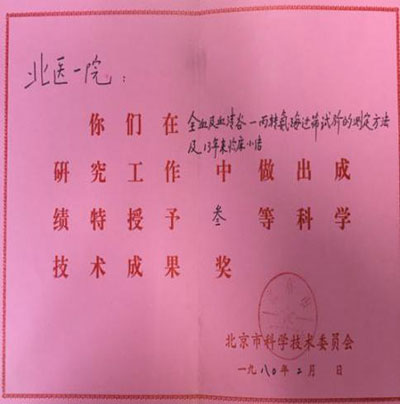 北医一院：
你们在全血及血清谷一丙转氨酶过筛试验的测定方法
及13年来临床小结
研究工作中做出成
绩特授予叁等科学
技术成果奖
北京市科学技术委员会
一九八〇年二月 日